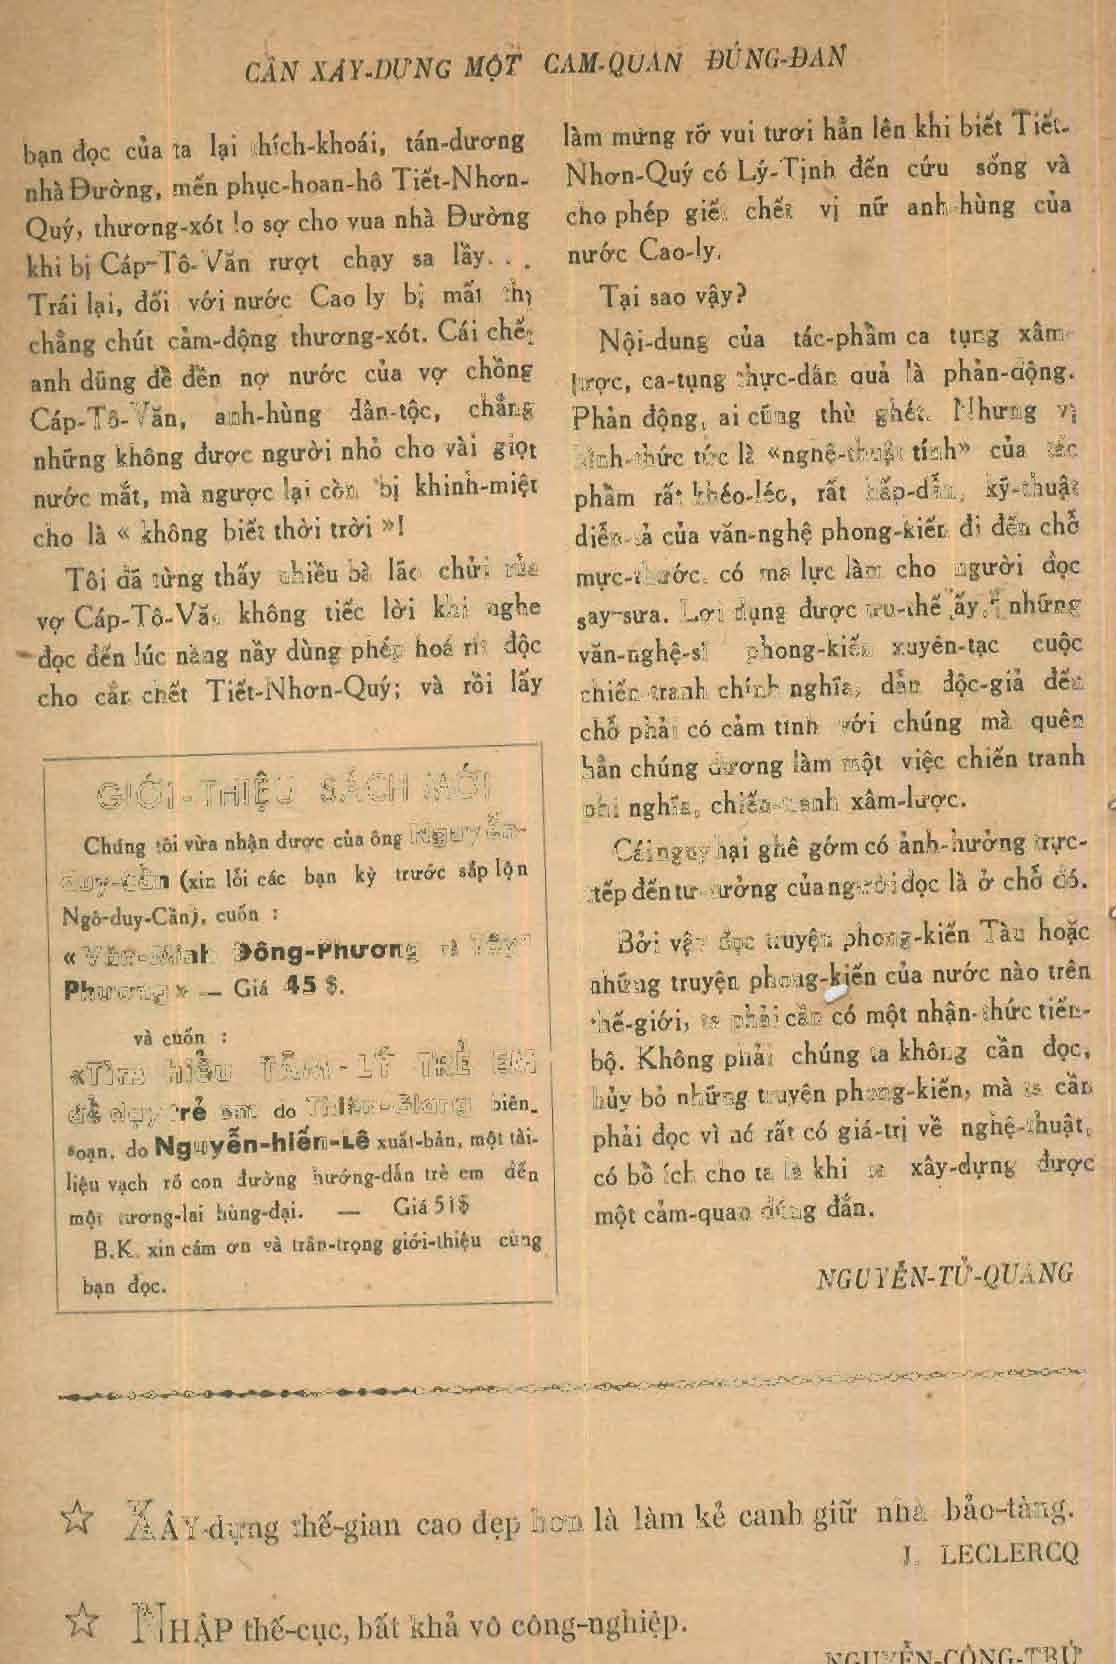 CẦN XÂY-DỰNG MỘT CẢM-QUAN ĐÚNG-ĐẮN
bạn đọc của ta lại thích-khoái, tán-dương
nhà Đường, mến phục-hoan-hô Tiết-Nhơn-
Quý, thương-xót lo sợ cho vua nhà Đường
khi bị Cáp-Tô-Văn rượt chạy sa lầy. . .
Trái lại, đối với nước Cao ly bị mất thì
chẳng chút cảm-động thương-xót. Cái chết
anh dũng để đền nợ nước của vợ chồng
Cáp-Tô-Văn, anh-hùng dân-tộc, chẳng
những không được người nhỏ cho vài giọt
nước mắt, mà ngược lại còn bị khinh-miệt
cho là « không biết thời trời »!
Tôi đã từng thấy nhiều bà lão chửi rủa
vợ Cáp-Tô-Văn không tiếc lời khi nghe
đọc đến lúc nàng nầy dùng phép hoá rít độc
cho cắn chết Tiết-Nhơn-Quý; và rồi lấy
làm mừng rỡ vui tươi hẳn lên khi biết Tiết-
Nhơn-Quý có Lý-Tịnh đến cứu sống và
cho phép giết chết vị nữ anh-hùng của
nước Cao-ly.
Tại sao vậy?
Nội-dung của tác-phẩm ca tụng xâm-
lược, ca-tụng thực-dân quả là phản-động.
Phản động, ai cũng thù ghét. Nhưng vì
hình-thức tức là «nghệ-thuật tính» của tác
phẩm rất khéo-léo, rất hấp-dẫn, kỹ-thuật
diễn-tả của văn-nghệ phong-kiến đi đến chỗ
mực-thước, có ma lực làm cho người đọc
say-sưa. Lợi dụng được ưu-thế ấy, những
văn-nghệ-sĩ phong-kiến xuyên-tạc cuộc
chiến tranh chính nghĩa, dẫn độc-giả đến
chỗ phải có cảm tình với chúng mà quên
hẳn chúng đương làm một việc chiến tranh
phi nghĩa, chiến-tranh xâm-lược.
Cái nguy hại ghê gớm có ảnh-hưởng trực-
tếp đến tư tưởng của người đọc là ở chỗ đó.
Bởi vậy đọc truyện phong-kiến Tàu hoặc
những truyện phong-kiến của nước nào trên
thế-giới, ta phải cần có một nhận-thức tiến-
bộ. Không phải chúng ta không cần đọc,
hủy bỏ những truyện phong-kiến, mà ta cần
phải đọc vì nó rất có giá-trị về nghệ-thuật,
có bổ ích cho ta là khi ta xây-dựng được
một cảm-quan đúng đắn.
NGUYỄN-TỬ-QUANG
GIỚI-THIỆU SÁCH MỚI
Chúng tôi vừa nhận được của ông Nguyễn-
duy-Cần (xin lỗi các bạn kỳ trước sắp lộn
Ngô-duy-Cần), cuốn :
« Văn-Minh Đông-Phương và Tây
Phương » — Giá 45 $.
và cuốn :
«Tìm hiểu TÂM-LÝ TRẺ EM
để dạy trẻ em do Thiên-Giang biên-
soạn, do Nguyễn-hiến-Lê xuất-bản, một tài-
liệu vạch rõ con đường hướng-dẫn trẻ em đến
một tương-lai hùng-đại. — Giá 51$
B.K. xin cám ơn và trân-trọng giới-thiệu cùng
bạn đọc.
☆ XÂY-dựng thế-gian cao đẹp hơn là làm kẻ canh giữ nhà bảo-tàng.
J. LECLERCQ
☆ NHẬP thế-cục, bất khả vô công-nghiệp.
NGUYỄN-CÔNG-TRỨ